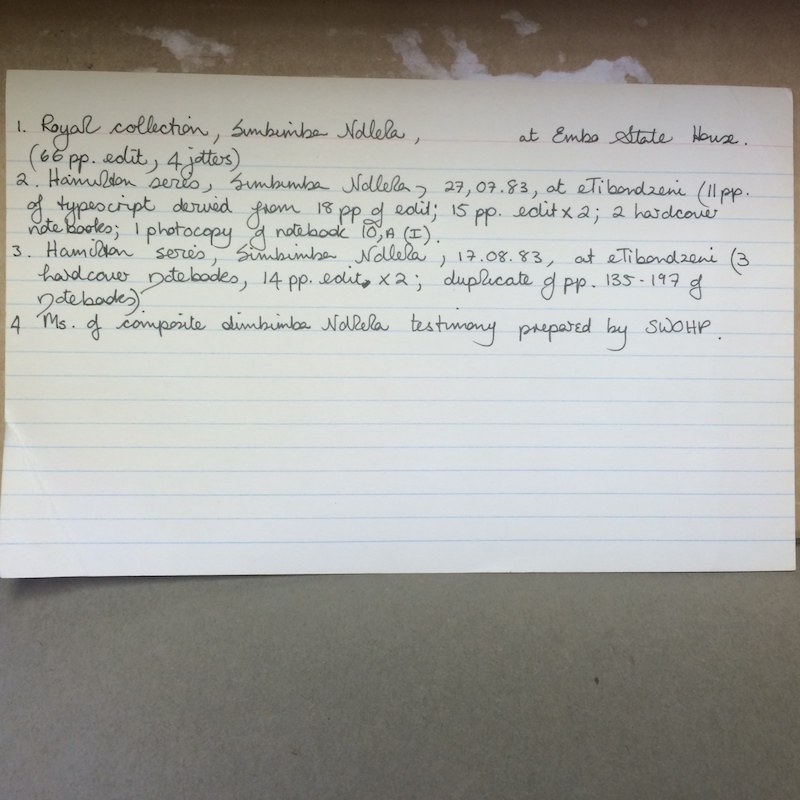 1. Royal collection, Simbimba Ndlela, at Embo State House.
(66 pp. edit, 4 jotters)
2. Hamilton series, Simbimba Ndlela, 27,07.83, at eTibondzeni (11 pp.
of typescript derived from 18 pp of edit; 15 pp. edit x 2; 2 hardcover
notebooks; 1 photocopy of notebook 10, A (I).
3. Hamilton series, Simbimba Ndlela, 17.08.83, at eTibondzeni (3
hardcover notebooks, 14 pp. edit x 2; duplicate of pp. 135-197 of
notebooks).
4 Ms. of composite Simbimba Ndlela testimony prepared by SWOHP.